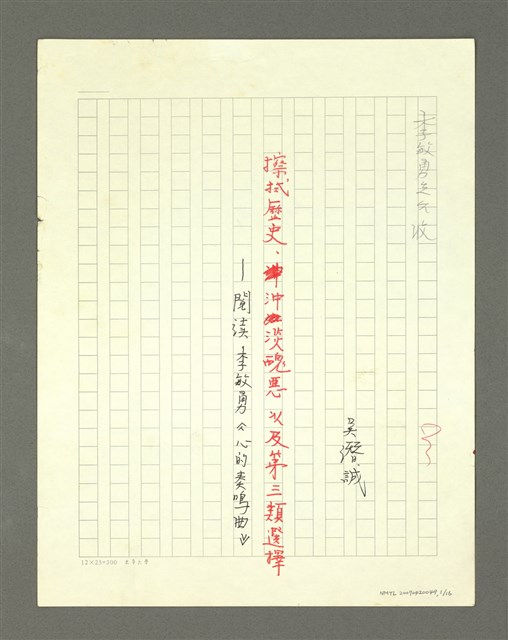 李敏勇先生收
吳潛誠
擦拭歷史、沖淡醜惡以及第三類選擇
—閱讀李敏勇《心的奏鳴曲》
12×25=300